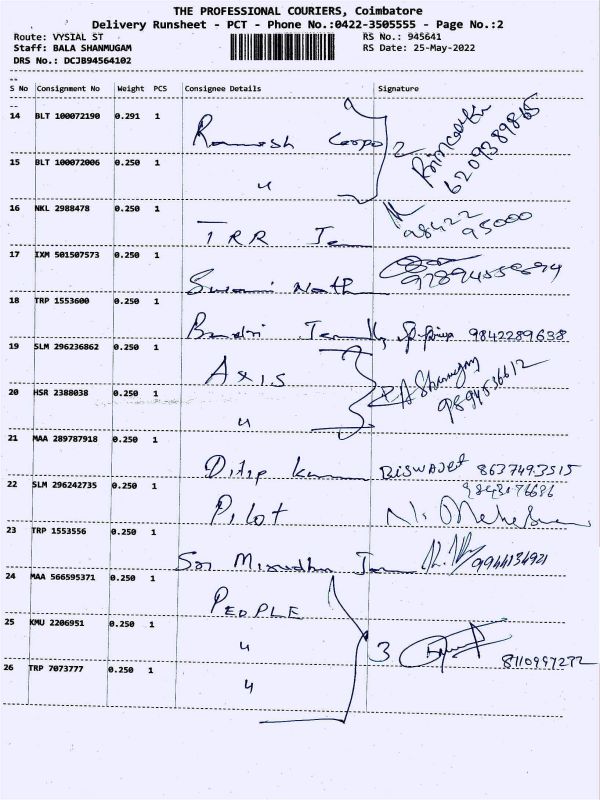 THE PROFESSIONAL COURIERS, Coimbatore
Delivery Runsheet - PCT - Phone No.:0422-3505555 - Page No.:2
Route: VYSIAL ST RS No.: 945641
Staff: BALA SHANMUGAM RS Date: 25-May-2022
DRS No.: DCJB94564102
S No Consignment No Weight PCS Consignee Details Signature
14 BLT 100072190 0.291 1 Ramesh 2 6209389865
15 BLT 100072006 0.250 1 "
16 NKL 2988478 0.250 1 TRR 98422 95000
17 IXM 501507573 0.250 1 Swami Nath
18 TRP 1553600 0.250 1 9842289638
19 SLM 296236862 0.250 1 AXIS A Shanmugam
20 HSR 2388038 0.250 1 " 9894536612
21 MAA 289787918 0.250 1 Dilip Kumar BISWAJEt 8637493515
22 SLM 296242735 0.250 1 Pilot
23 TRP 1553556 0.250 1 Sri 9944134921
24 MAA 566595371 0.250 1 PEOPLE
25 KMU 2206951 0.250 1 " 3
26 TRP 7073777 0.250 1 " 8110997272